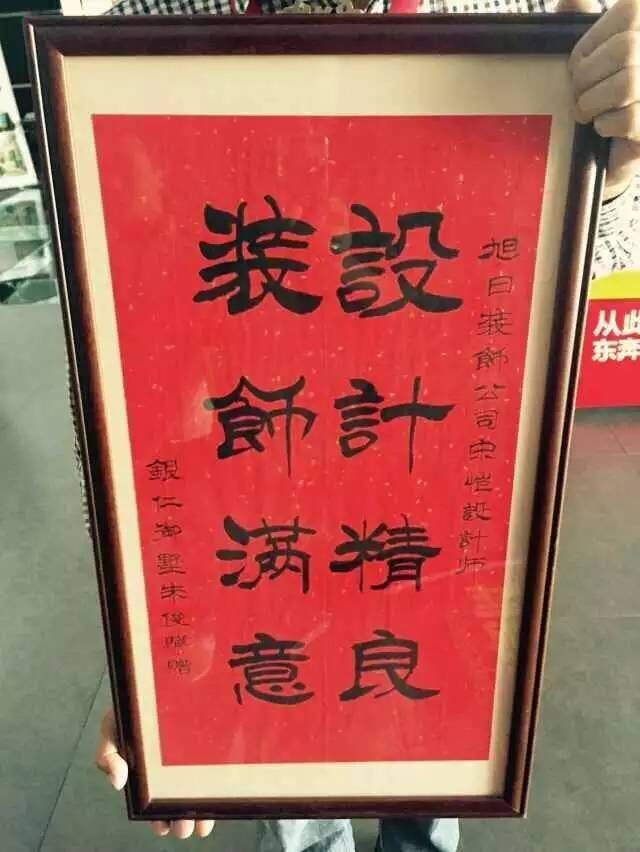 旭日装飾公司宋愷設計师
設計精良
装飾满意
銀仁御墅朱俊
从此
东奔